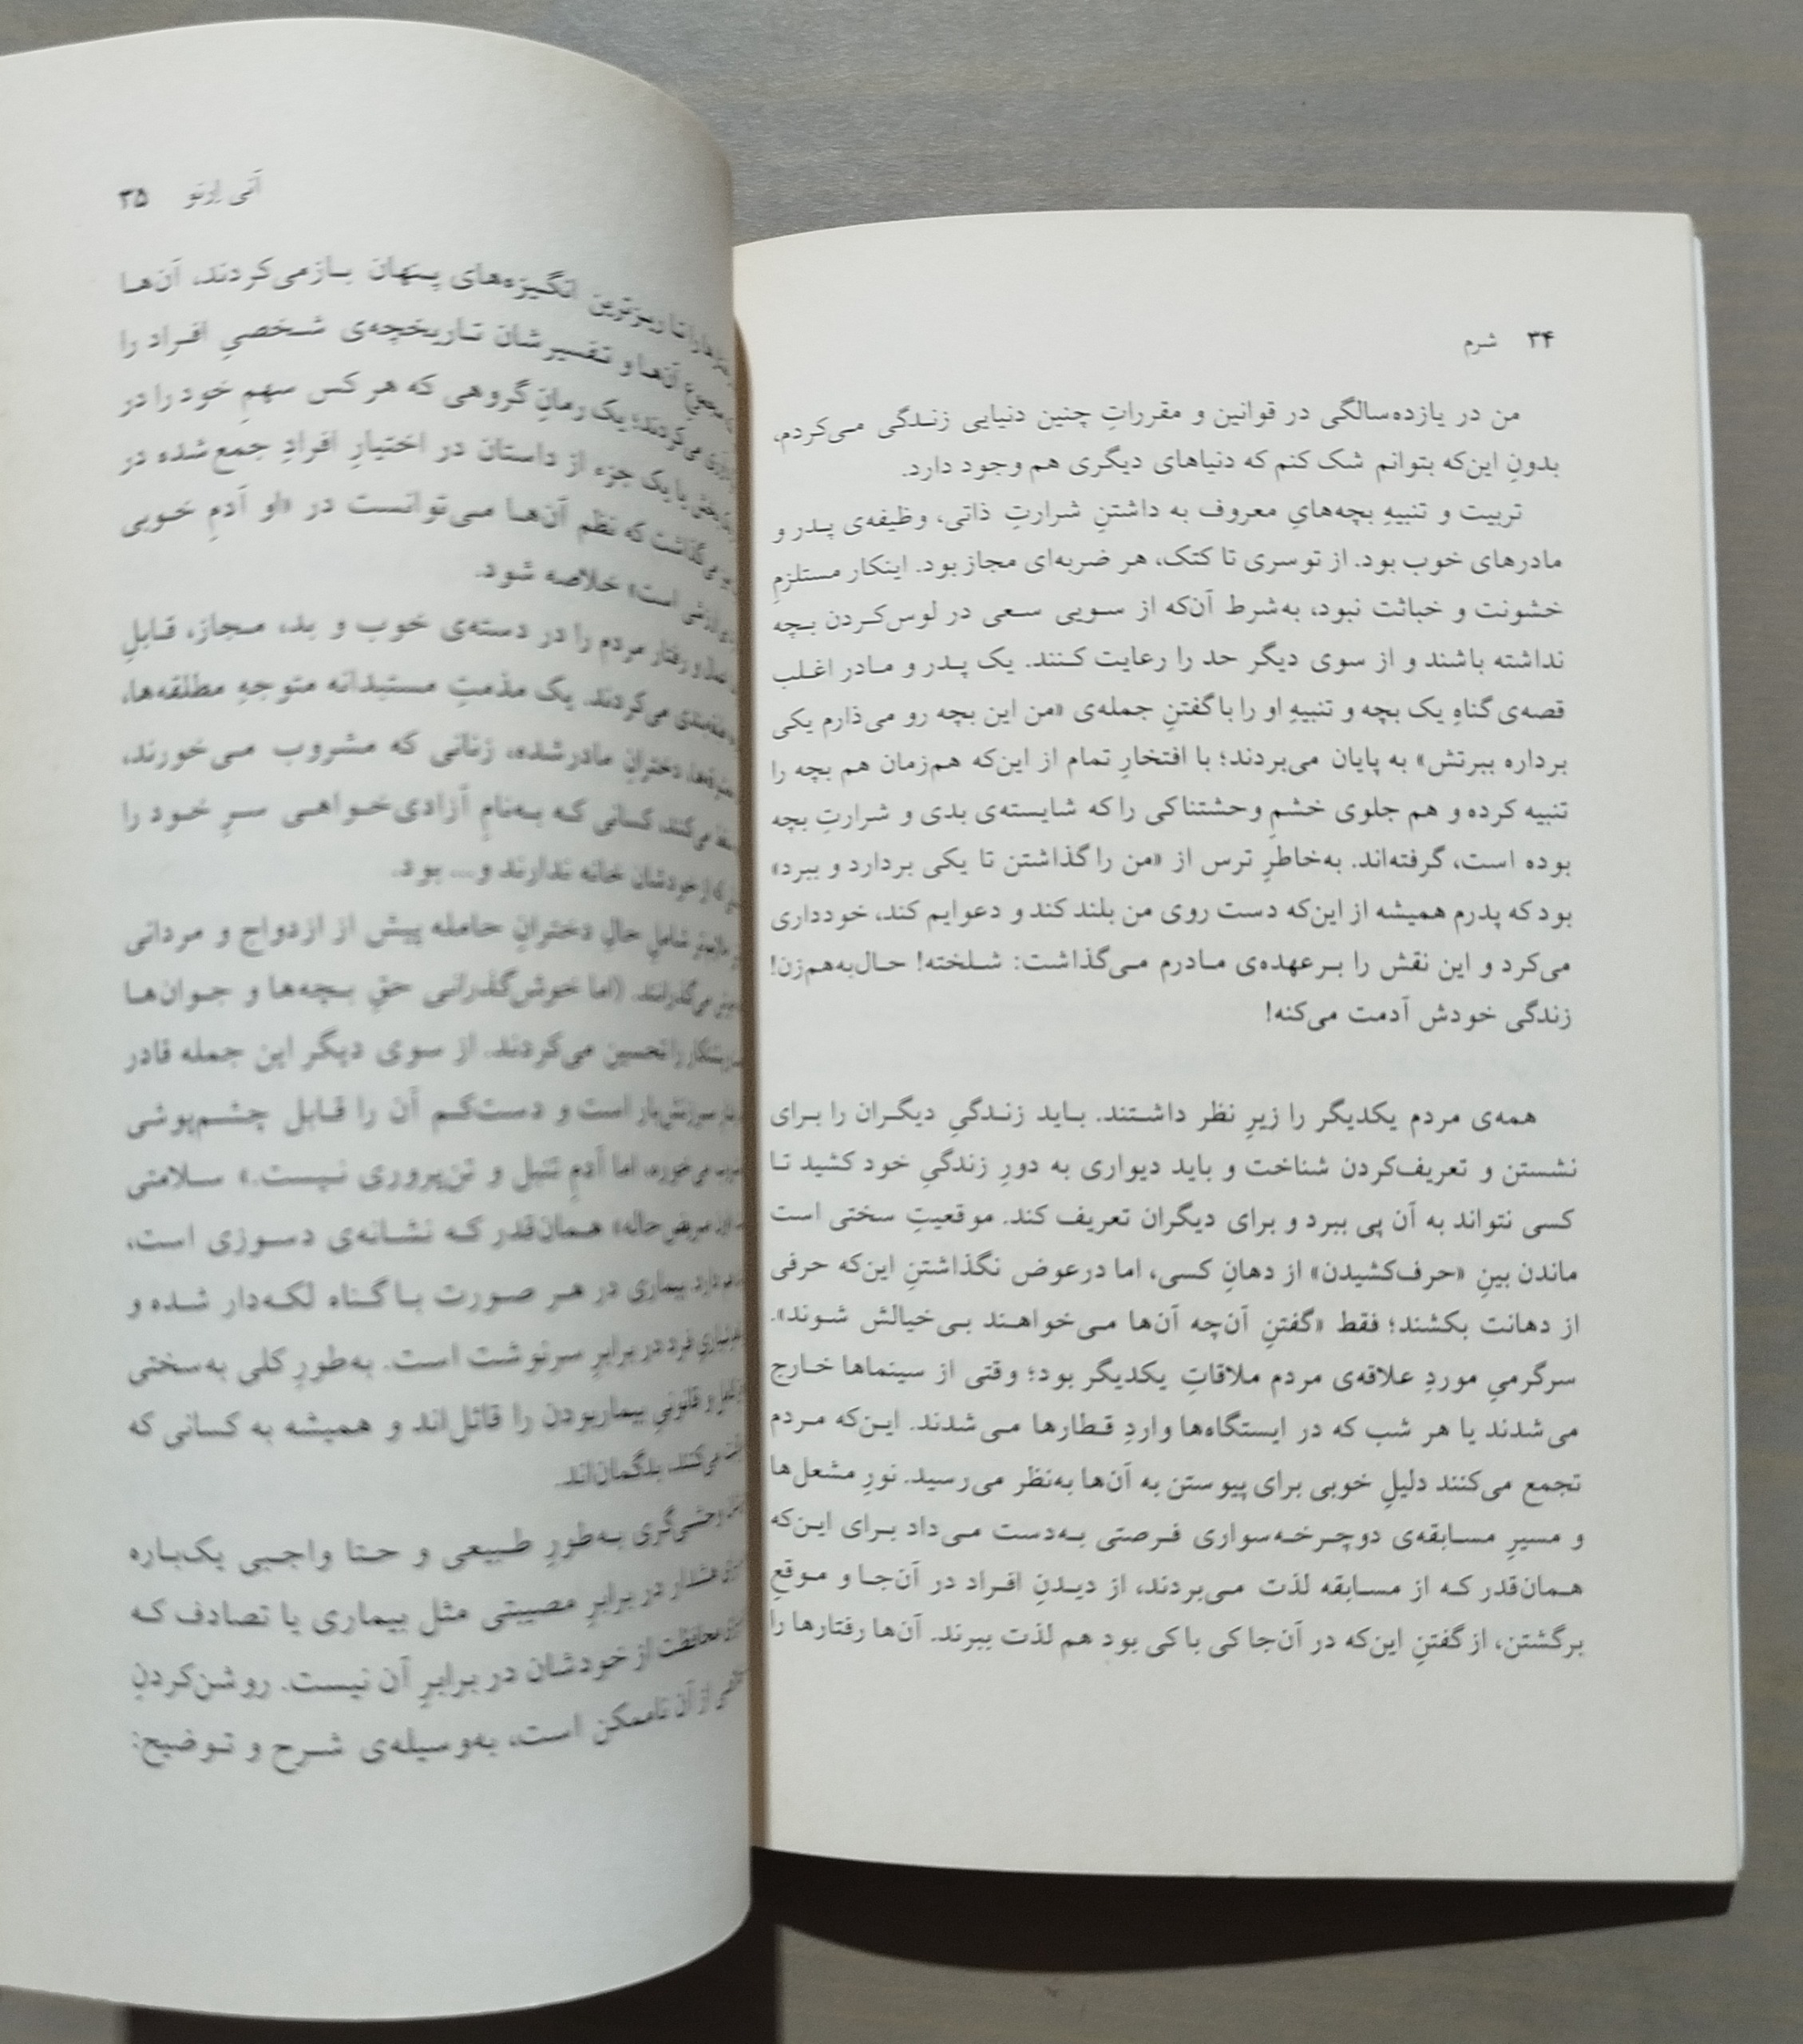 ۳۴ شرم
من در یازده‌سالگی در قوانین و مقرراتِ چنین دنیایی زندگی می‌کردم،
بدونِ این‌که بتوانم شک کنم که دنیاهای دیگری هم وجود دارد.
تربیت و تنبیهِ بچه‌هایِ معروف به داشتنِ شرارتِ ذاتی، وظیفه‌ی پدر و
مادرهای خوب بود. از توسری تا کتک، هر ضربه‌ای مجاز بود. اینکار مستلزمِ
خشونت و خباثت نبود، به‌شرط آن‌که از سویی سعی در لوس‌کردن بچه
نداشته باشند و از سوی دیگر حد را رعایت کنند. یک پدر و مادر اغلب
قصه‌ی گناهِ یک بچه و تنبیهِ او را با گفتنِ جمله‌ی «من این بچه رو می‌ذارم یکی
برداره ببرتش» به پایان می‌بردند؛ با افتخارِ تمام از این‌که هم‌زمان هم بچه را
تنبیه کرده و هم جلوی خشمِ وحشتناکی را که شایسته‌ی بدی و شرارتِ بچه
بوده است، گرفته‌اند. به‌خاطرِ ترس از «من را گذاشتن تا یکی بردارد و ببرد»
بود که پدرم همیشه از این‌که دست روی من بلند کند و دعوایم کند، خودداری
می‌کرد و این نقش را برعهده‌ی مادرم می‌گذاشت: شلخته! حال‌به‌هم‌زن!
زندگی خودش آدمت می‌کنه!
همه‌ی مردم یکدیگر را زیرِ نظر داشتند. باید زندگیِ دیگران را برای
نشستن و تعریف‌کردن شناخت و باید دیواری به دورِ زندگیِ خود کشید تا
کسی نتواند به آن پی ببرد و برای دیگران تعریف کند. موقعیتِ سختی است
ماندن بینِ «حرف‌کشیدن» از دهانِ کسی، اما درعوض نگذاشتنِ این‌که حرفی
از دهانت بکشند؛ فقط «گفتنِ آن‌چه آن‌ها می‌خواهند بی‌خیالش شوند».
سرگرمیِ موردِ علاقه‌ی مردم ملاقاتِ یکدیگر بود؛ وقتی از سینماها خارج
می‌شدند یا هر شب که در ایستگاه‌ها واردِ قطارها می‌شدند. این‌که مردم
تجمع می‌کنند دلیلِ خوبی برای پیوستن به آن‌ها به‌نظر می‌رسید. نورِ مشعل‌ها
و مسیرِ مسابقه‌ی دوچرخه‌سواری فرصتی به‌دست می‌داد برای این‌که
همان‌قدر که از مسابقه لذت می‌بردند، از دیدنِ افراد در آن‌جا و موقعِ
برگشتن، از گفتنِ این‌که در آن‌جا کی با کی بود هم لذت ببرند. آن‌ها رفتارها را
آنی ارنو ۳۵
را تا ریزترین انگیزه‌های پنهان بازمی‌کردند، آن‌ها
مجموعِ آن‌ها و تفسیرشان تاریخچه‌ی شخصیِ افراد را
می‌کردند؛ یک رمانِ گروهی که هر کس سهمِ خود را در
بخش یا یک جزء از داستان در اختیارِ افرادِ جمع‌شده در
می‌گذاشت که نظم آن‌ها می‌توانست در «او آدمِ خوبی
است» خلاصه شود.
و رفتار مردم را در دسته‌ی خوب و بد، مجاز، قابلِ
می‌کردند. یک مذمتِ مستبدانه متوجهِ مطلقه‌ها،
دخترانِ مادرشده، زنانی که مشروب می‌خورند،
می‌کنند، کسانی که به‌نامِ آزادی‌خواهی سرِ خود را
که از خودشان خانه ندارند و... بود.
شاملِ حالِ دخترانِ حامله پیش از ازدواج و مردانی
می‌گذرانند. (اما خوش‌گذرانی حقِ بچه‌ها و جوان‌ها
را تحسین می‌کردند. از سوی دیگر این جمله قادر
سرزنش‌بار است و دست‌کم آن را قابل چشم‌پوشی
می‌خوره، اما آدمِ تنبل و تن‌پروری نیست.» سلامتی
مریض‌حاله» همان‌قدر که نشانه‌ی دسوزی است،
دارد بیماری در هر صورت با گناه لکه‌دار شده و
فرد در برابرِ سرنوشت است. به‌طورِ کلی به‌سختی
و قانونیِ بیماربودن را قائل‌اند و همیشه به کسانی که
می‌کنند، بدگمان‌اند.
وحشی‌گری به‌طورِ طبیعی و حتا واجبی یک‌باره
هشدار در برابرِ مصیبتی مثل بیماری یا تصادف که
محافظت از خودشان در برابرِ آن نیست. روشن‌کردنِ
از آن ناممکن است، به‌وسیله‌ی شرح و توضیح: